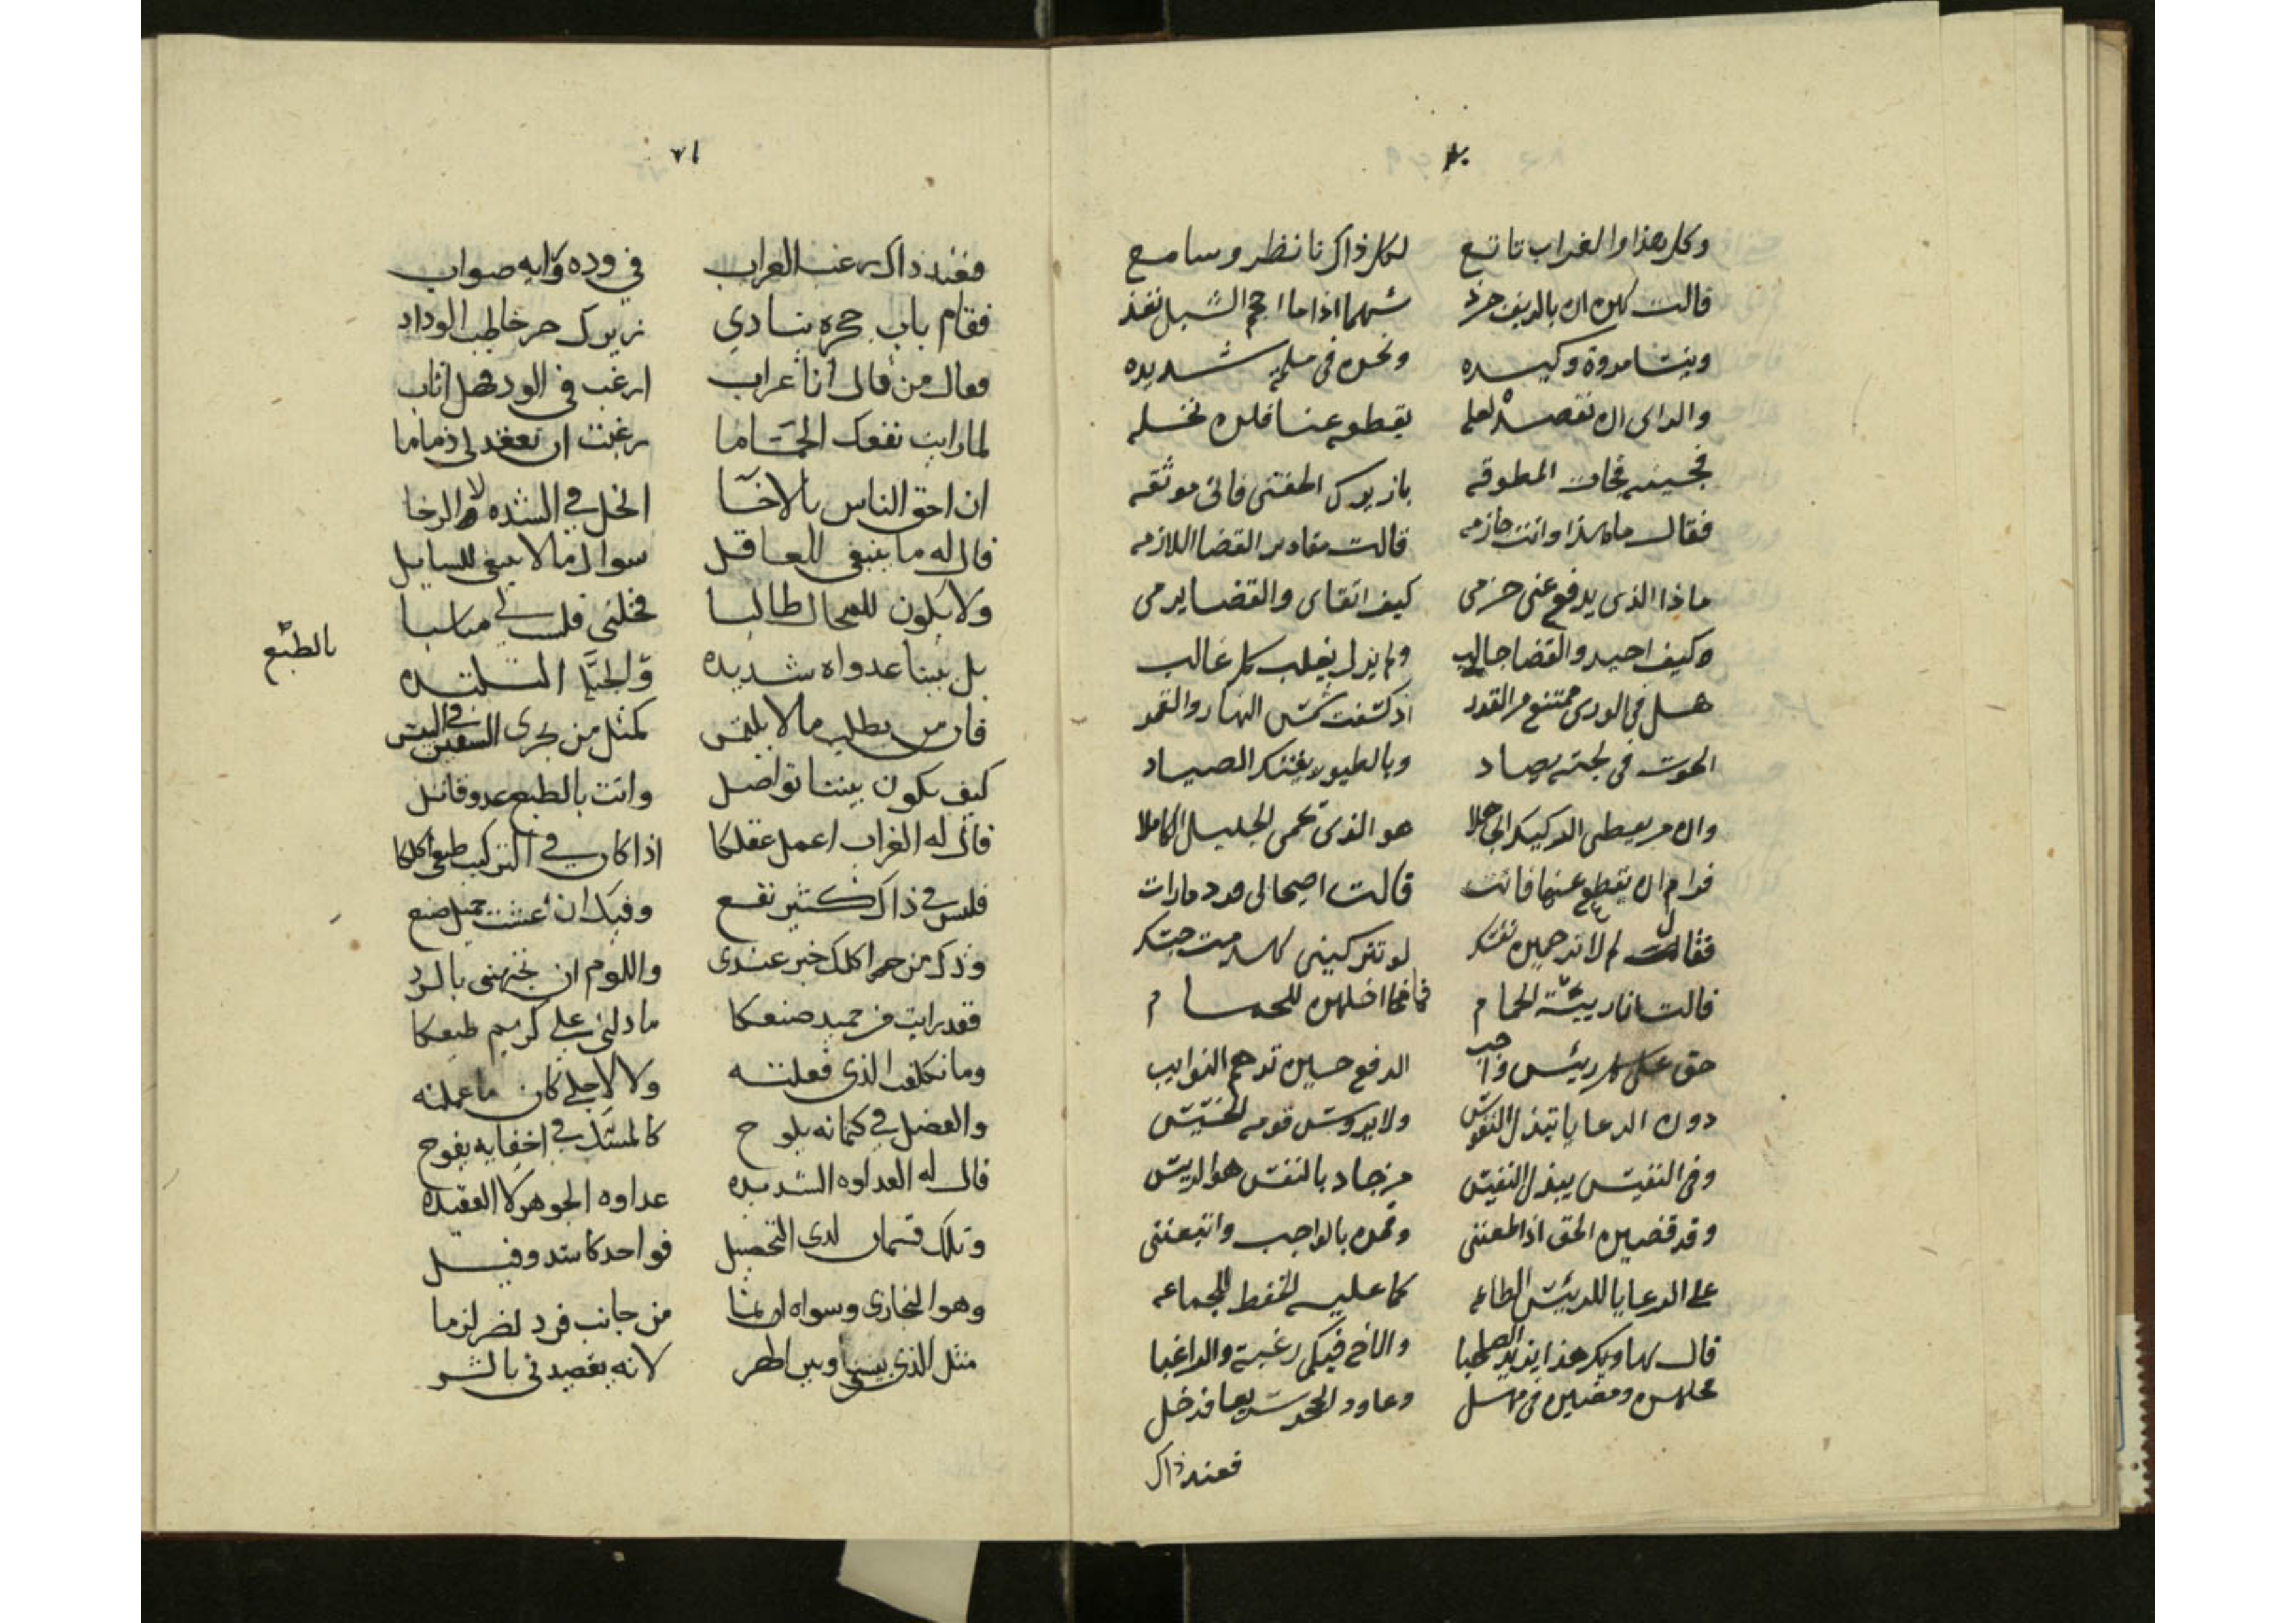 وكل هذا والغراب تابع لكل ذاك ناظر وسامع
قالت لهن ان بالريف جرذ شهما اذا ما احجم الشبل نفذ
وبيننا مروة وكيده ونحن في ملمة شديده
والراى ان نقصده لعله يقطع عنا فلن نخله
فجينه فجات المطوقه يا زيرك الحقنى فانى موثقه
فقال ما هذا وانت حازمه قالت مقادير القضا اللازمه
ماذا الذى يدفع عنى حزمى كيف اتقاى والقضا يرمى
وكيف احيد والقضا جالب ولم يزل يغلب كل غالب
هل فى الورى ممتنع من القدر اذ كسفت شمس النهار والقمر
الحوت فى لجته يصاد وبالطيور يفتك الصياد
وان من يعطى الركيك الجاهلا هو الذى يحمى الجليل الكاملا
فرام ان يقطع عنها فاتت قالت اصحابى
فقال لم لا ترحمين نفسك لو تتركينى
قالت انا رييسة الحمام للحمام
حق على كل رييس واجب الدفع حين تدهم النوايب
دون الرعايا تبذل النفوس ولا يروس قومه الخسيس
وفى النفيس يبذل النفيس من جاد بالنفس هو الرييس
وقد قضين الحق اذ اطعننى وقمن بالواجب واتبعننى
على الرعايا للرييس الطاعه كما عليه الحفظ للجماعه
قال لها وبك هذا يزيد الصاحبا والاخ فيكى رغبة والراغبا
ومضين فى مهل وعاود الجحر سريعا فدخل
فعند ذاك
٧١
فعند ذاك رغب الغراب في وده ورايه صواب
فقام باب جحره ينادي زيرك حر خاطب الوداد
فقال من قال انا غراب ارغب في الود فهل اثاب
لما رايت نفعك الحماما رغبت ان تعقد لي ذماما
ان احق الناس بالاخا الخل في الشده لا الرخا
قال له ما ينبغي للعاقل سوال ما لا ينبغي للسايل
ولا يكون للمحال طالبا فخلني فلست لي مناسبا
بل بيننا عدواه شديده
بالطبع
فان من يطلب ما لا يلتمس كمثل من يجرى السفين في اليبس
كيف يكون بيننا تواصل وانت بالطبع عدو قاتل
قال له الغراب اعمل عقلكا اذا كان في التركيب طبعي اكلكا
فليس في ذاك كثير نفع وفيك ان عشت جميل صنع
وذكر من حر اكلك خير عندى واللوم ان تجبهني بالرد
فقد رايت من حميد صنعكا ما دلني على كريم طبعكا
وما تكلفت الذي فعلته ولا لاجلي كان ما عملته
والفضل في كتمانه يلوح كالمسك في اخفايه يفوح
قال له العداوه الشديده عداوه الجوهر لا العقيده
وتلك قسمان لدى التحصيل فواحد كاسد وفيل
وهو التجازى وسواه انما من جانب فرد لضر لزما
مثل الذي بيني وبين الهر لانه يقصدني بالشر